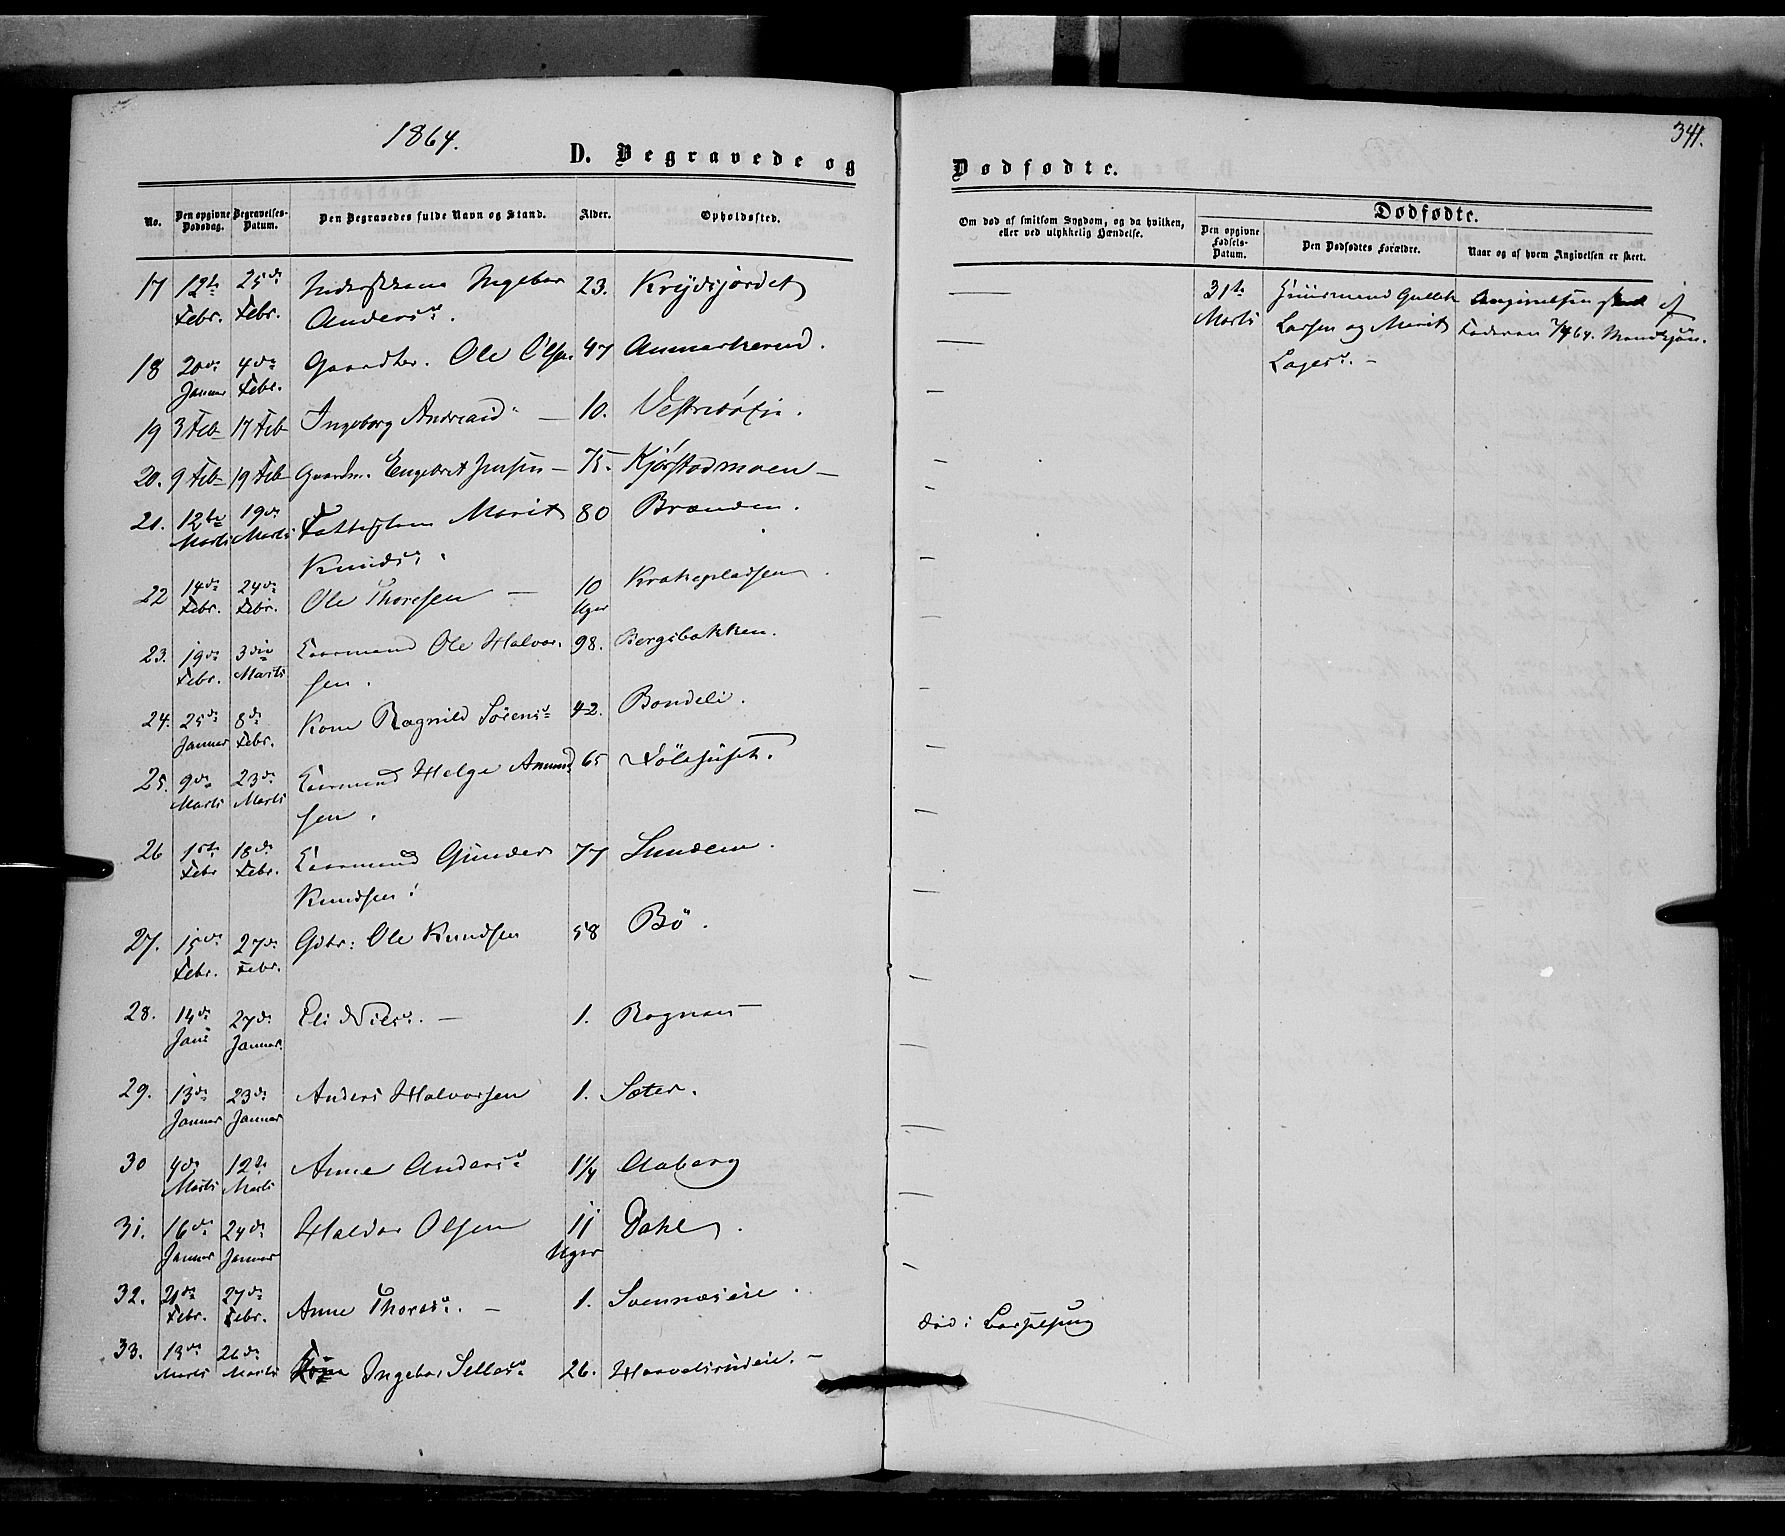 1864.
D. Begravede og
Dødfødte.
341.
No.
Den opgivne Dødsdag.
Begravelses-Datum.
Den Begravedes fulde Navn og Stand.
Alder.
Opholdssted.
Om død af smitsom Sygdom, og da hvilken, eller ved ulykkelig Hændelse.
Dødfødte.
Den opgivne Fødsels-Datum.
Den Dødfødtes Forældre.
Naar og af hvem Angivelsen er skeet.
17 12te Febr. 25de Febr. Ingebor 23. Krydsjordet
Andersd.
18 20de Januar 4de Febr. Gaardbr. Ole Olsen 47 Aamarkerud.
19 3 Feb 17 Feb Ingeborg — 10.
20. 9 Feb 19 Feb Gaardm. Engebret Jensen — 75 Kjørstadmoen —
21. 12te Marts 19de Marts Marit 80 Brænden.
Knudsd.
22 14de Febr. 24de Febr. Ole Thoresen — 10 Uger Krakepladsen.
23. 19de Febr. 3die Marts Ole Halvor- 98. Bergsbakken.
sen.
24. 25de Januar 8de Febr. Kone Ragnild Sørensd. 42. Bondeli.
25. 9de Marts 23de Marts Helge Amund 65
sen.
26 1ste Febr 18de Febr. Gunder 77 Sundem.
Knudsen.
27. 15de Febr. 27de Febr. Gdbr: Ole Knudsen 58 Bö.
28. 14de Janr 27de Januar. Eli Nilsd. — 1. Rognas
29. 13de Januar 23de Januar Anders Halvorsen 1. Sæter.
30 4de Marts 12te Marts Anne Andersd. 1¼ Aaberg
31. 16de Januar 24de Januar Haldor Olsen 11 Uger Dahl.
32. 21de Febr. 27de Febr. Anne Thorsd. — 1. Svennæseie.
33. 13de Marts 26de Marts Ingebor 26. —
død i Barselseng
31te Marts
Huusmand Gullik
Larsen og Marit
Angivelsen skeet af
Faderen 7/4 64.